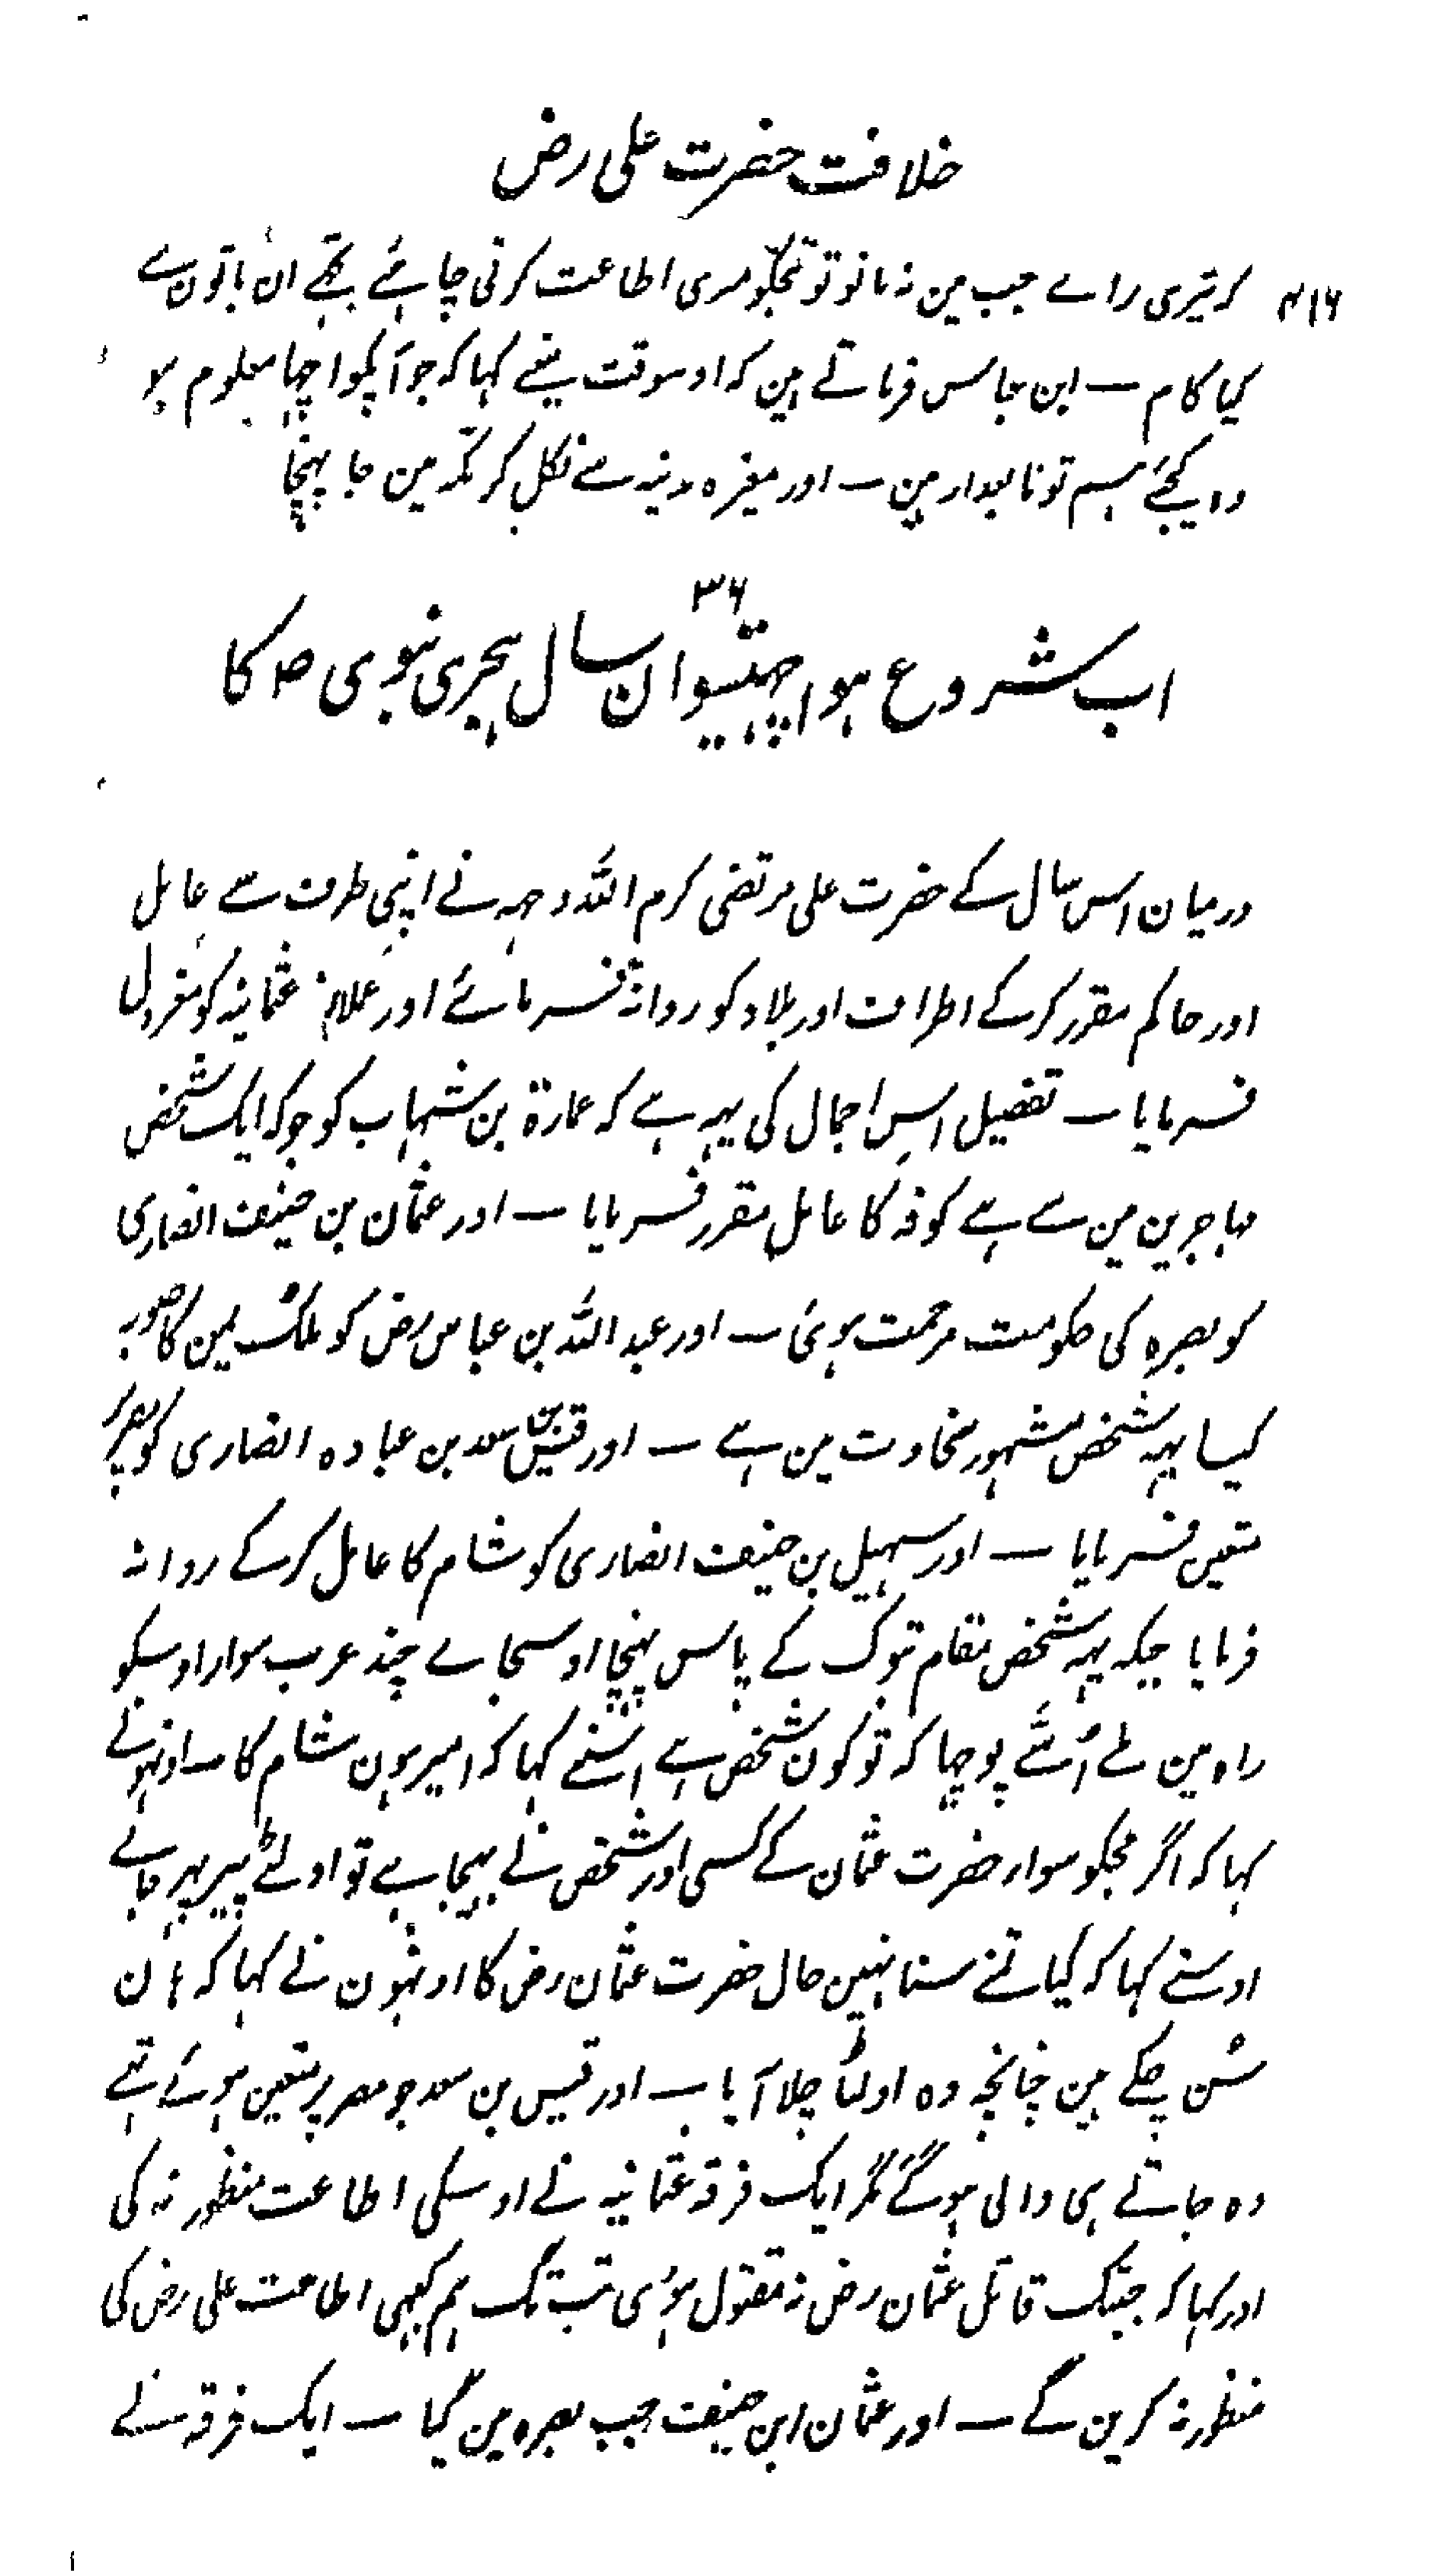 خلافت حضرت علی رض
۴۱۶ کر تیری رائے جب مین نہ مانو تو تجکو مری اطاعت کرنی چاہئے تجھے ان باتون سے
کیا کام ــ ابن عباس فرماتے ہین کہ اوسوقت مینے کہا کہ جو آپکو اچہا معلوم ہو
وہ کیجئے ہم تو تابعدار ہین ــ اور مغیرہ مدینہ سے نکل کر مکہ مین جا پہنچا
۳۶
اب شروع ہوا چہتیسوان سال ہجری نبوی ص کا
درمیان اس سال کے حضرت علی مرتضی کرم اللہ وجہہ نے اپنی طرف سے عامل
اور حاکم مقرر کرکے اطراف اور بلاد کو روانہ فرمائے اور عملائہ عثمانیہ کو معزول
فرمایا ــ تفصیل اس اجمال کی یہہ ہے کہ عمارۃ بن شہاب کو جو کہ ایک شخص
مہاجرین مین سے ہے کوفہ کا عامل مقرر فرمایا ــ اور عثمان بن حنیف انصاری
کو بصرہ کی حکومت مرحمت ہوئی ــ اور عبد اللہ بن عباس رض کو ملک یمن کا صوبہ
کیا یہہ شخص مشہور سخاوت مین ہے ــ اور قیس بن سعد بن عبادہ انصاری کو مصر پر
متعین فرمایا ــ اور سہیل بن حنیف انصاری کو شام کا عامل کرکے روانہ
فرمایا جبکہ یہہ شخص مقام تبوک کے پاس پہنچا اوسجاے چند عرب سوار اوسکو
راہ مین ملے اُسّے پوچہا کہ تو کون شخص ہے اسنے کہا کہ امیر ہون شام کا ــ اونہونے
کہا کہ اگر تجکو سوار حضرت عثمان کے کسی اور شخص نے بہیجا ہے تو اولٹے پیر پہر جائے
اوسنے کہا کہ کیا تمنے سنا نہین حال حضرت عثمان رض کا اونہون نے کہا کہ ہان
سُن چکے ہین چنانچہ وہ اولٹا چلا آیا ــ اور قیس بن سعد جو مصر پر متعین ہوئے تھے
وہ جاتے ہی والی ہوگئے مگر ایک فرقہ عثمانیہ نے اوسکی اطاعت منظور نہ کی
اور کہا کہ جبتک قاتل عثمان رض نہ مقتول ہوئی تب تک ہم کبہی اطاعت علی رض کی
منظور نہ کرین گے ــ اور عثمان ابن حنیف جب بصرہ مین گیا ــ ایک فرقہ نے